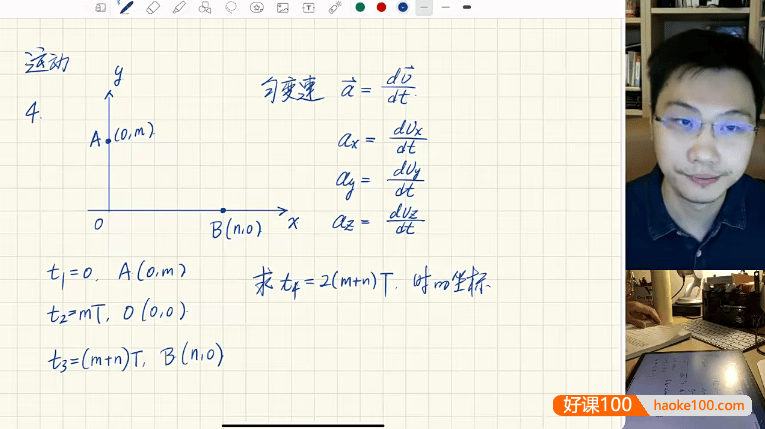 运动
4.
y
A (0,m)
O
B(n,0)
x
匀变速 a⃗ = dv⃗/dt.
ax = dvx/dt
ay = dvy/dt
az = dvz/dt
t1=0, A(0,m)
t2=mT, O(0,0).
t3=(m+n)T, B(n,0)
求 t4=2(m+n)T. 时的坐标
好课100 haoke100.com